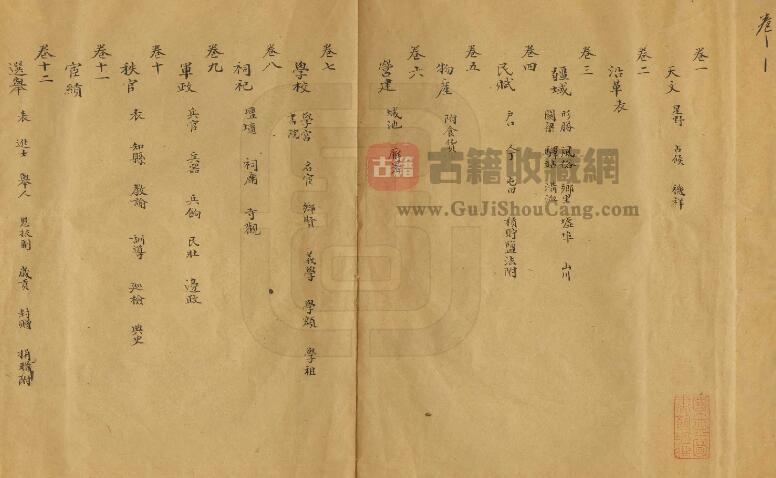 卷一
天文 星野 占候 禨祥
卷二
沿革表
卷三
疆域 形勝 風俗 鄉里 墟埠 山川
關梁 驛站 溝洫
卷四
民賦 戶口 人丁 屯田 積貯鹽法附
卷五
物產 附食貨
卷六
營建 城池 廨署
卷七
學校 學宮 名宦 鄉賢 義學 學額 學租
書院
卷八
祠祀 壇壝 祠廟 寺觀
卷九
軍政 兵官 兵器 兵餉 民壯 邊政
卷十
秩官 表 知縣 教諭 訓導 巡檢 典史
卷十一
宦績
卷十二
選舉 表 進士 舉人 恩拔副 歲貢 封贈 捐職附
古籍
古籍收藏網
www.GuJiShouCang.com